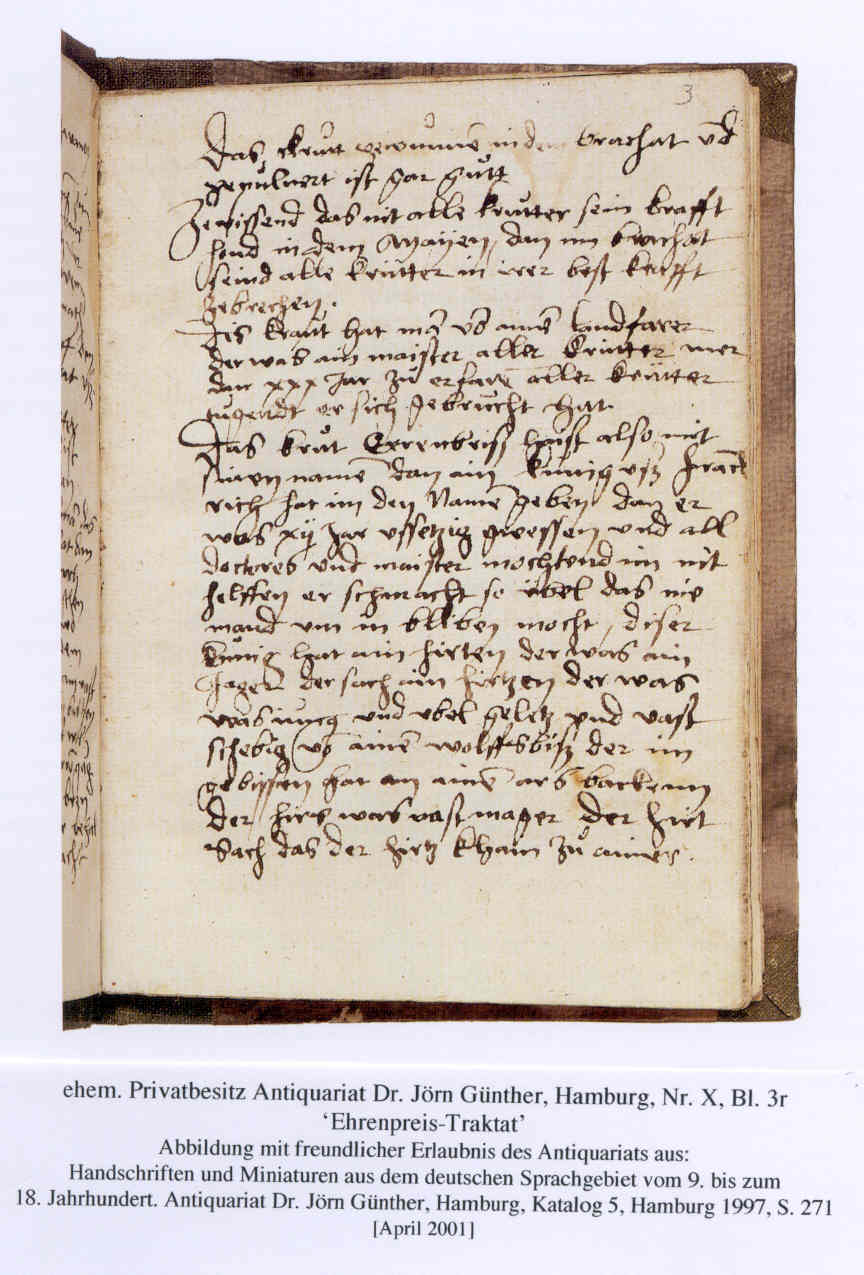 3
Das krutt gewunnen in dem brachat vnd
gepuluert ist gar gůtt
Ze wissend das nit alle krutter sein krafft
hend in dem Mayen, dan im brachat
seind alle krutter in irer best krafft
ze brechen.
Dis kraut hat mā vō ainē landfarer
der was ain maister aller krutter mer
dan xxx Jar zů erfarē aller krutter
tugendt er sich gebrucht hat.
Das krůt Erenbriss haist also mit
sinen namē dan ain kunig vsz Franck
rich hat im den Namē geben dan er
was xij Jar vssetzig gwessen vnd all
doctores vnd maister mochtend im nit
helffen er schmacht so übel das nie
mand vm in bliben mocht, diser
kunig hat ain hirten der was ain
Jager der sach ain hirtzen der was
was iung vnd vbel geletz vnd vast
schebig vō ainē wolffsbisz der im
gebissen hat an ainē ars backenn
der hirs was vast mager der hirt
sach das der hirtz kham zů ainer.
ehem. Privatbesitz Antiquariat Dr. Jörn Günther, Hamburg, Nr. X, Bl. 3r
‘Ehrenpreis-Traktat’
Abbildung mit freundlicher Erlaubnis des Antiquariats aus:
Handschriften und Miniaturen aus dem deutschen Sprachgebiet vom 9. bis zum
18. Jahrhundert. Antiquariat Dr. Jörn Günther, Hamburg, Katalog 5, Hamburg 1997, S. 271
[April 2001]